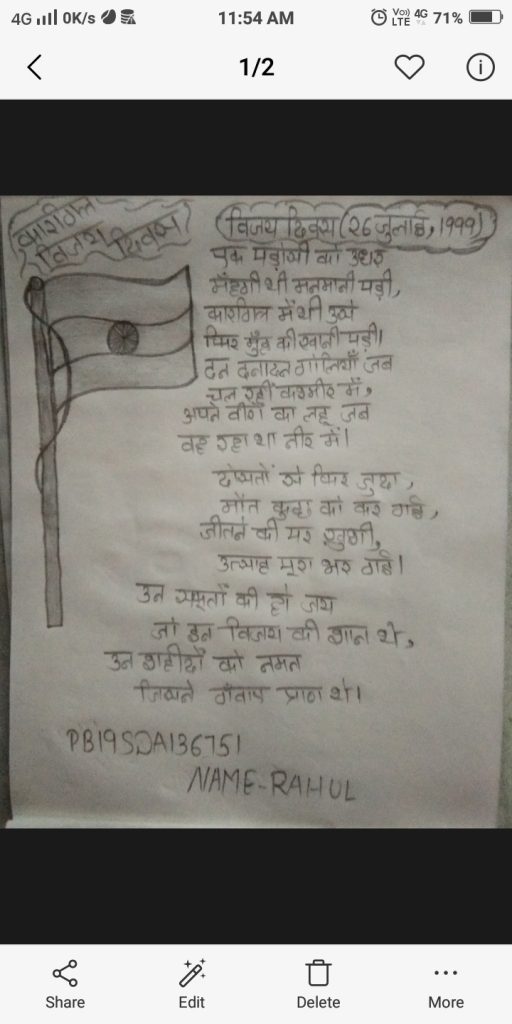 4G 0K/s 11:54 AM VoD LTE 4G 71%
1/2
कारगिल
विजय दिवस
विजय दिवस (26 जुलाई, 1999)
एक पड़ोसी को उधर
मँहगी थी मनमानी पड़ी,
कारगिल में भी उसे
फिर मुँह की खानी पड़ी।
दन दनादन गोलियाँ जब
चल रहीं कश्मीर में,
अपने वीरों का लहू जब
बह रहा था नीर में।
दोस्तों से फिर जुदा,
मौत कुछ को कर गई,
जीतने की पर खुशी,
उत्साह पूरा भर गई।
उन सपूतों की हो जय
जो इन विजय की शान थे,
उन शहीदों को नमन
जिसने गँवाए प्राण थे।
PB19SDA136751
NAME-RAHUL
Share
Edit
Delete
More